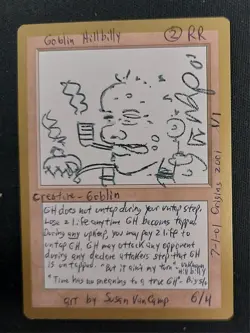 Goblin Hillbilly ② RR
1/1
7-1-01 Cruisin 2001
Creature - Goblin
GH does not untap during your untap step.
Lose 2 life anytime GH becomes tapped.
During any upkeep, you may pay 2 life to
untap GH. GH may attack any opponent
during any attackers step that GH
is untapped. "But it ain't my turn" - unknown
hillbilly
"Time has no meaning to a true GH" -
6/4
art by Susan VanCamp